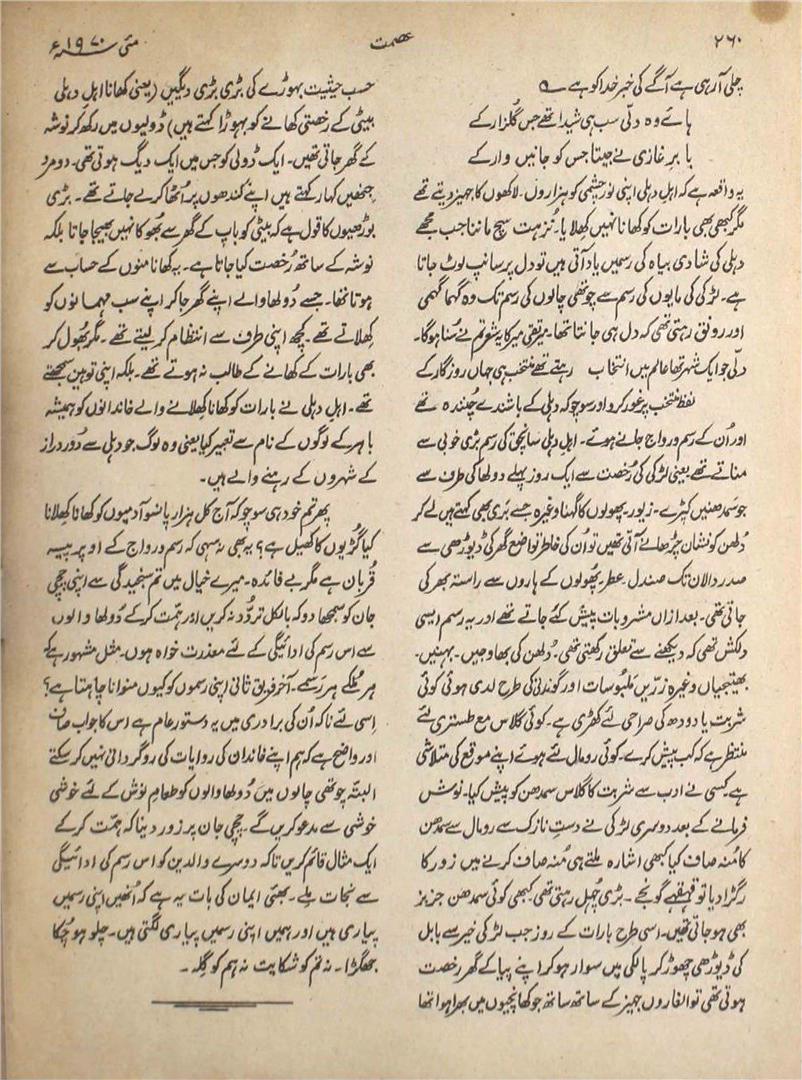 ۲۶۰
عصمت
مئی ۱۹۷۰ء
چلی آرہی ہے آگے کی خبر خدا کو ہے ؎
ہائے وہ دلّی سب ہی شیدا تھے جس گلزار کے
بابرِ غازی نے جیتا جس کو جانیں وار کے
یہ واقعہ ہے کہ اہلِ دہلی اپنی نورچشمی کو ہزاروں۔ لاکھوں کا جہیز دیتے تھے
مگر کبھی بھی بارات کو کھانا نہیں کھلایا۔ نُزہت سچ ماننا جب مجھے
دہلی کی شادی بیاہ کی رسمیں یاد آتی ہیں تو دل پر سانپ لوٹ جاتا
ہے۔ لڑکی کی مایوں کی رسم سے چوتھی چالوں کی رسم تک وہ گہما گہمی
اور رونق رہتی تھی کہ دل ہی جانتا تھا۔ میر تقی میر کا یہ شعر تم نے سُنا ہوگا۔
دلّی جو ایک شہر تھا عالم میں انتخاب رہتے تھے منتخب ہی جہاں روزگار کے
لفظ منتخب پر غور کرو اور سوچو کہ دہلی کے باشندے چنندہ تھے
اور اُن کے رسم و رواج جانے ہوئے۔ اہلِ دہلی سانچق کی رسم بڑی خوبی سے
مناتے تھے یعنی لڑکی کی رُخصت سے ایک روز پہلے دولھا کی طرف سے
جو سمدھنیں کپڑے۔ زیور۔ پھولوں کا گہنا وغیرہ جسے بَری بھی کہتے ہیں لے کر
دُلھن کو نشان چڑھانے آتی تھیں تو اُن کی خاطر تواضع گھر کی ڈیوڑھی سے
صدر دالان تک صندل۔ عطر۔ پھولوں کے ہاروں سے راستہ بھر کی
جاتی تھی۔ بعد ازاں مشروبات پیش کئے جاتے تھے اور یہ رسم ایسی
دلکش تھی کہ دیکھنے سے تعلق رکھتی تھی۔ دُلھن کی بھاوجیں۔ بہنیں۔
بھتیجیاں وغیرہ زرّیں ملبوسات اور گوندنی کی طرح لدی ہوئی کوئی
شربت یا دودھ کی صراحی لئے کھڑی ہے۔ کوئی گلاس مع طشتری لئے
منتظر ہے کہ کب پیش کرے۔ کوئی رومال لئے ہوئے اپنے موقع کی متلاشی
ہے۔ کسی نے ادب سے شربت کا گلاس سمدھن کو پیش کیا۔ نوش
فرمانے کے بعد دوسری لڑکی نے دستِ نازک سے رومال سے سمدھن
کا مُنہ صاف کیا کبھی اشارہ ملتے ہی مُنہ صاف کرنے میں زور کا
رگڑا دیا تو قہقہے گونجے۔ بڑی چہل رہتی تھی۔ کبھی کوئی سمدھن جزبز
بھی ہو جاتی تھیں۔ اسی طرح بارات کے روز جب لڑکی خیر سے بابل
کی ڈیوڑھی چھوڑ کر پالکی میں سوار ہو کر اپنے پیا کے گھر رخصت
ہوتی تھی تو الغاروں جہیز کے ساتھ ساتھ جو کھانچیوں میں بھرا ہوا تھا
حسب حیثیت بہوڑے کی بڑی بڑی دیگیں (یعنی کھانا اہلِ دہلی
بیٹی کے رخصتی کھانے کو بہوڑا کہتے ہیں) ڈولیوں میں رکھ کر نوشہ
کے گھر جاتی تھیں۔ ایک ڈولی کو جس میں ایک دیگ ہوتی تھی۔ دو مرد
جنھیں کہار کہتے ہیں اپنے کندھوں پر اُٹھا کر لے جاتے تھے۔ بڑی
بوڑھیوں کا قول ہے کہ بیٹی کو باپ کے گھر سے بھوکا نہیں بھیجا جاتا بلکہ
نوشہ کے ساتھ رُخصت کیا جاتا ہے۔ یہ کھانا منوں کے حساب سے
ہوتا تھا۔ جسے دُولھا والے اپنے گھر جا کر اپنے سب مہمانوں کو
کھلاتے تھے۔ کچھ اپنی طرف سے انتظام کر لیتے تھے۔ مگر بھول کر
بھی بارات کے کھانے کے طالب نہ ہوتے تھے۔ بلکہ اپنی توہین سمجھتے
تھے۔ اہلِ دہلی نے بارات کو کھانا کھلانے والے خاندانوں کو ہمیشہ
باہر کے لوگوں کے نام سے تعبیر کیا یعنی وہ لوگ جو دہلی سے دُور دراز
کے شہروں کے رہنے والے ہیں۔
پھر تم خود ہی سوچو کہ آج کل ہزار پانسو آدمیوں کو کھانا کھلانا
کیا گڑیوں کا کھیل ہے؟ یہ بھی نہ سہی کہ رسم و رواج کے اوپر پیسہ
قُربان ہے مگر بے فائدہ۔ میرے خیال میں تم سنجیدگی سے اپنی چچی
جان کو سمجھا دو کہ بالکل تردّد نہ کریں اور ہمّت کر کے دُولھا والوں
سے اس رسم کی ادائیگی کے لئے معذرت خواہ ہوں۔ مثل مشہور ہے کہ
ہر مُلکے ہر رسمے۔ آخر فریق ثانی اپنی رسموں کو کیوں منوانا چاہتا ہے؟
اِسی لئے نا کہ اُن کی برادری میں یہ دستورِ عام ہے اس کا جواب صاف
اور واضح ہے کہ ہم اپنے خاندان کی روایات کی روگردانی نہیں کر سکتے
البتّہ چوتھی چالوں میں دُولھا والوں کو طعامِ نوش کے لئے خوشی
خوشی سے مدعو کریں گے۔ چچی جان پر زور دینا کہ ہمّت کر کے
ایک مثال قائم کریں تاکہ دوسرے والدین کو اس رسم کی ادائیگی
سے نجات ملے۔ بھئی ایمان کی بات یہ ہے کہ اُنھیں اپنی رسمیں
پیاری ہیں اور ہمیں اپنی رسمیں پیاری لگتی ہیں۔ چلو ہو چُکا
جھگڑا۔ نہ تم کو شکایت نہ ہم کو گِلہ۔